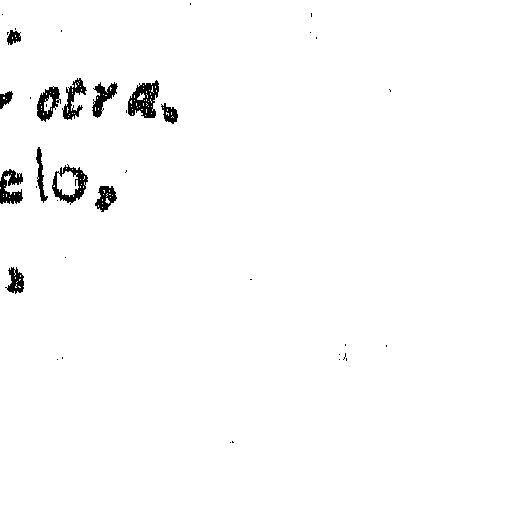 .
otra.
elo,
,